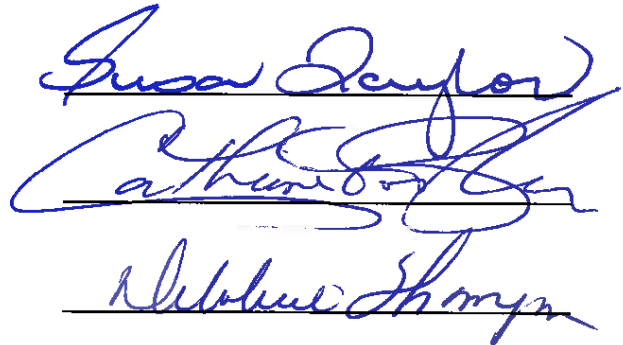 Susan Taylor
Catherine
Debbie Thompson